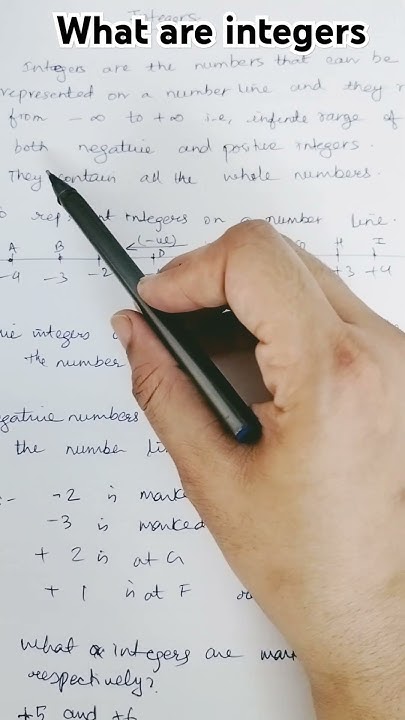 What are integers
Integers
Integers are the numbers that can be
represented on a number line and they
from - ∞ to + ∞ i.e, infinite range of
both negative and positive integers.
They contain all the whole numbers.
rep nt integers on a number line.
A B (-ve) D H I
-4 -3 -2 +3 +4
integers
the number
gative numbers
the number li
:- -2 is marke
-3 is marked
+ 2 is at G
+ 1 is at F
What integers are mar
respectively?
+5 and +6